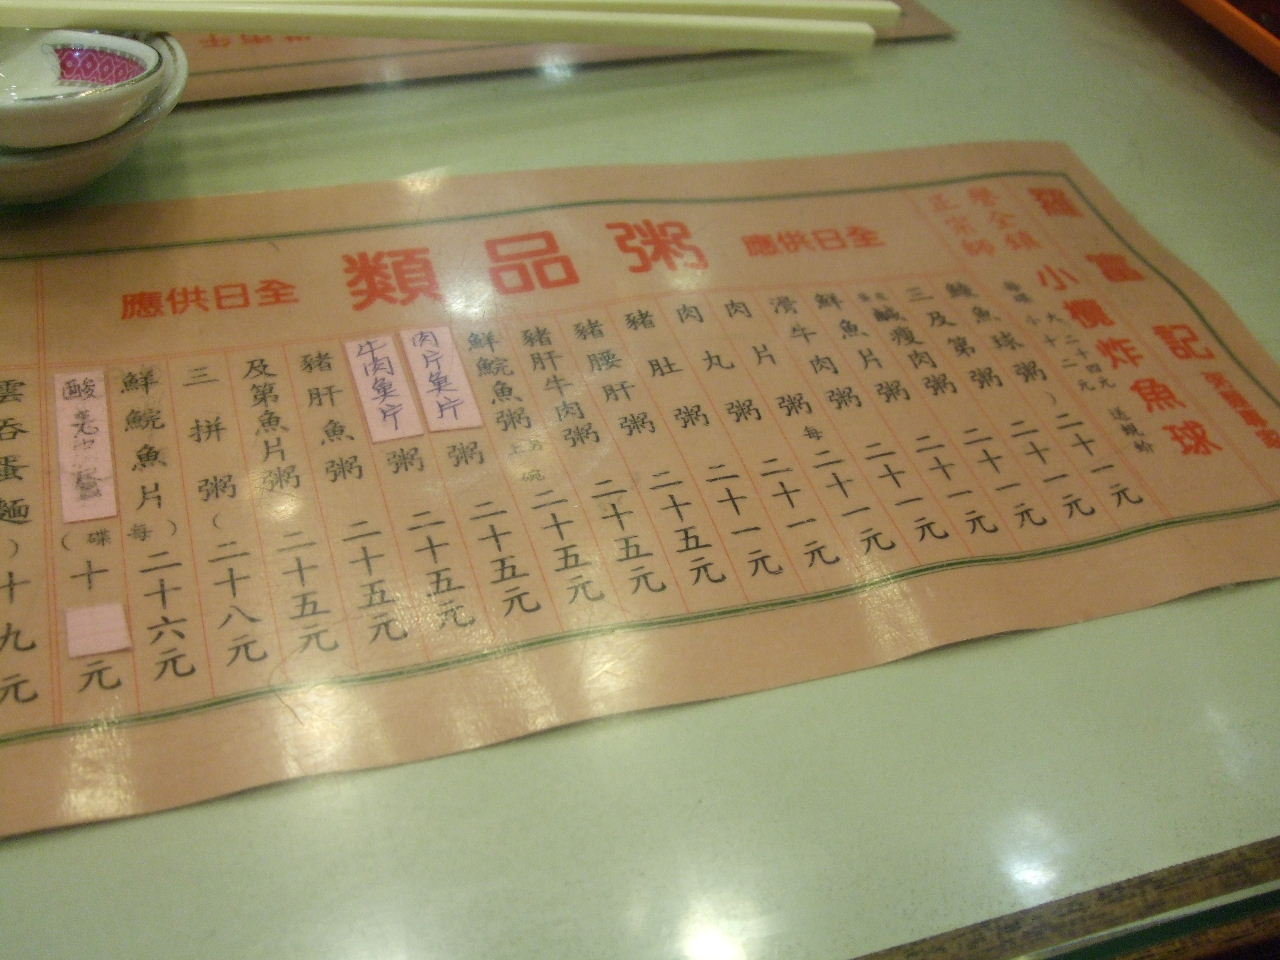 羅富記
粥麵專家
小價炸魚球
送蜆蚧
大二十四元
小十二元
每碟
正宗師
全日供應
粥品類
全日供應
鯪魚球粥 二十一元
三及第粥 二十一元
鹹瘦肉粥 二十一元
鮮魚片粥 二十一元
滑牛肉粥 二十一元
肉片粥 二十一元
肉丸粥 二十一元
豬肚粥 二十一元
豬腰肝粥 二十五元
豬肝牛肉粥 二十五元
鮮鯇魚粥 二十五元
肉片魚片粥 二十五元
牛肉魚片粥 二十五元
豬肝魚粥 二十五元
及第魚片粥 二十五元
三拼粥 二十八元
鮮鯇魚片 (每碟) 二十六元
酸 十 元
雲吞蛋麵) 十九元